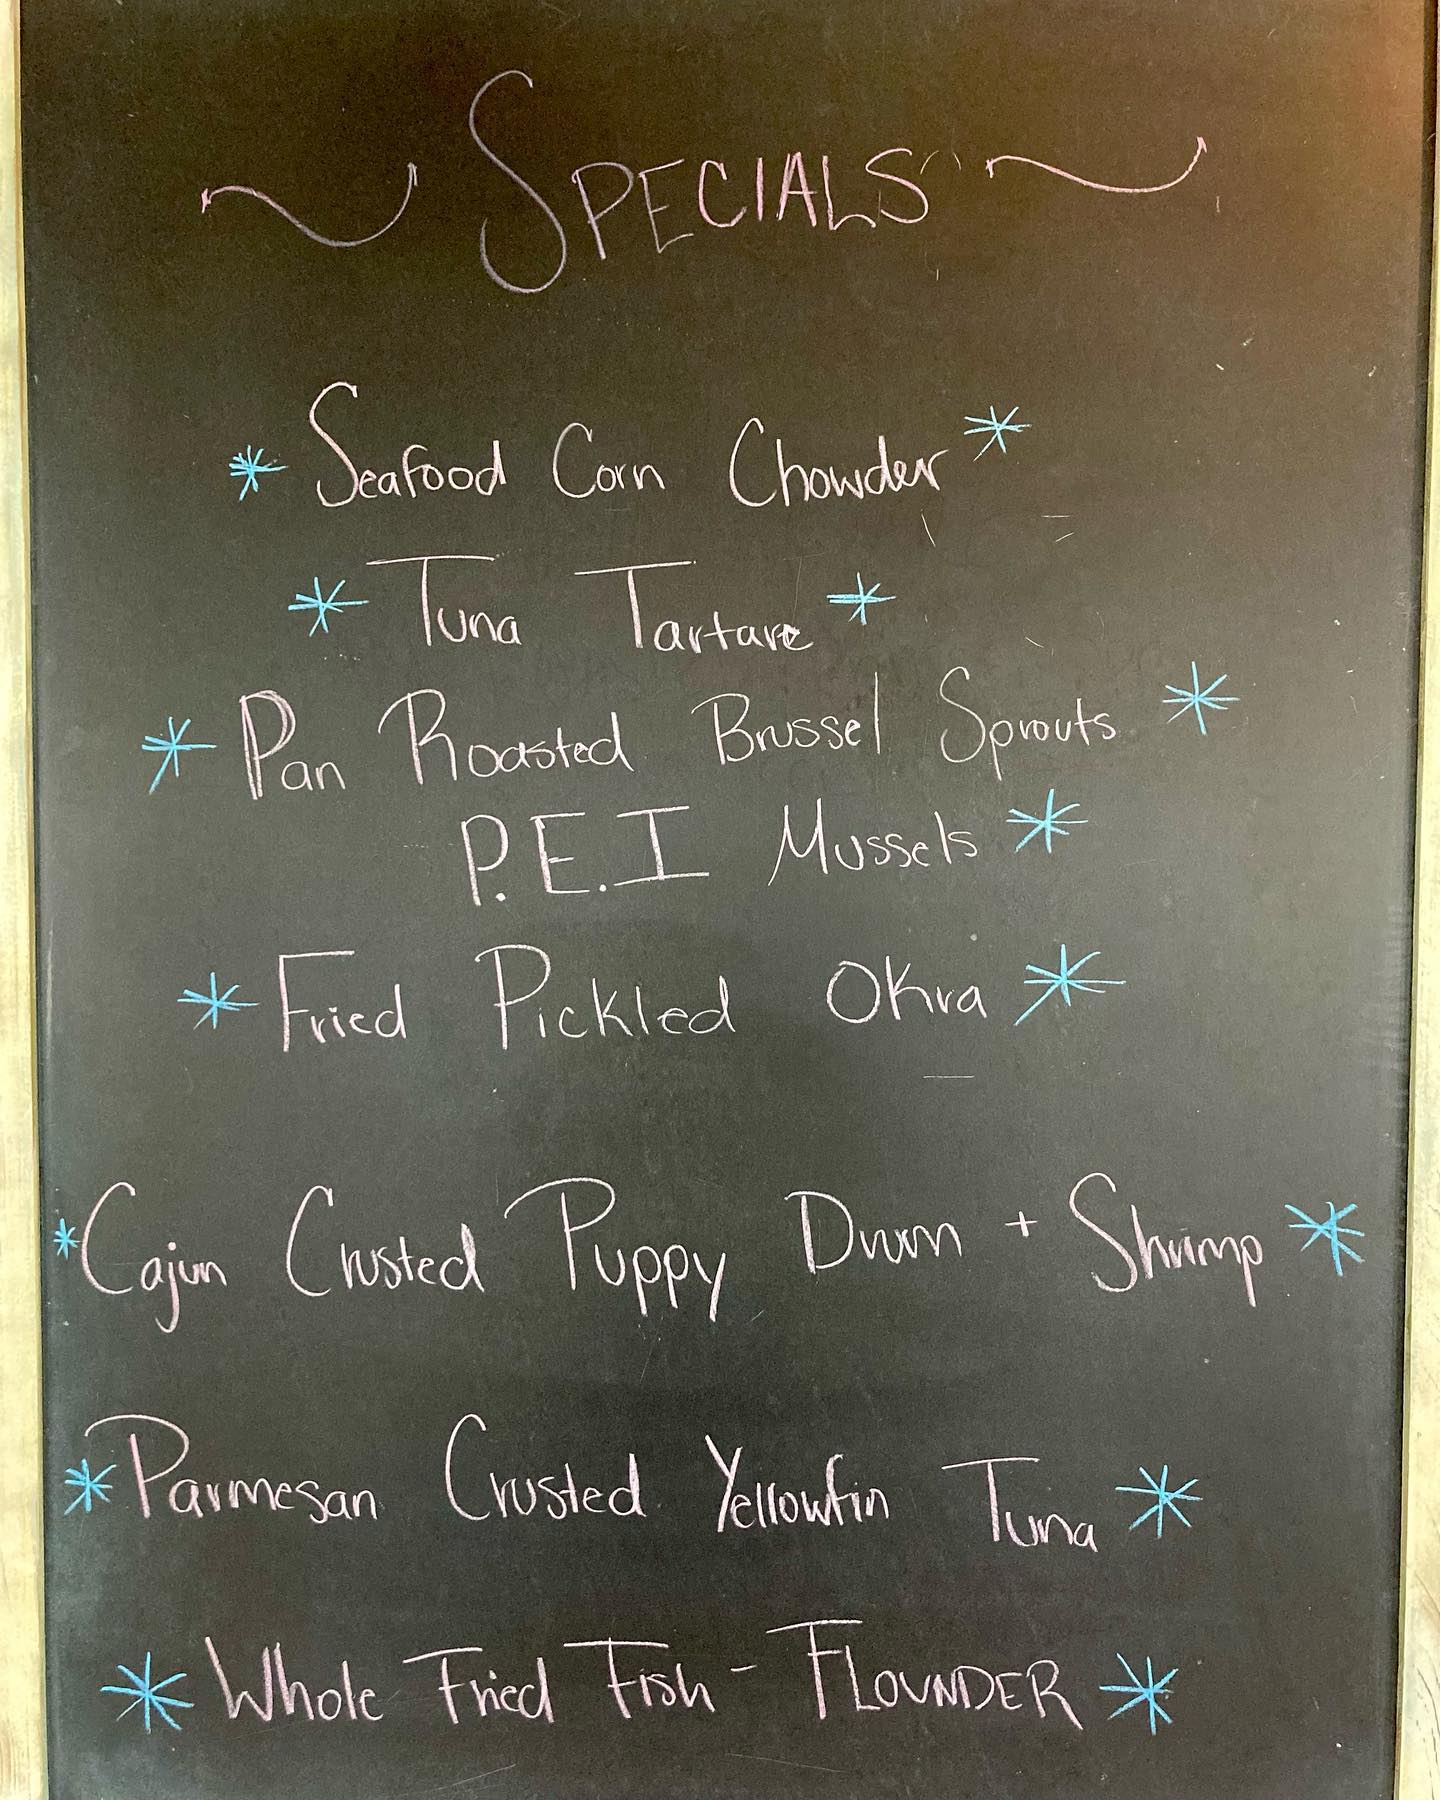 SPECIALS
* Seafood Corn Chowder *
* Tuna Tartare *
* Pan Roasted Brussel Sprouts *
P.E.I Mussels *
* Fried Pickled Okra *
* Cajun Crusted Puppy Drum + Shrimp *
* Parmesan Crusted Yellowfin Tuna *
* Whole Fried Fish - FLOUNDER *